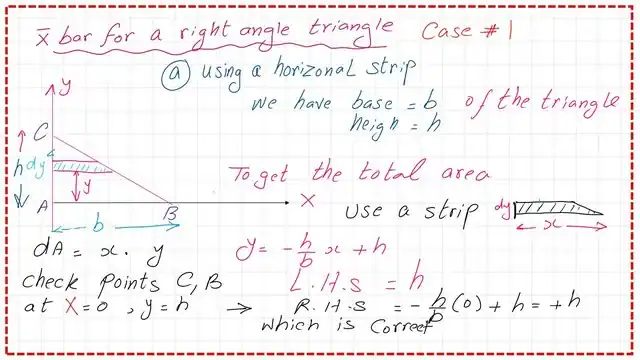 x̄ bar for a right angle triangle Case #1
(a) using a horizonal strip
we have base = b of the triangle
heigh = h
y
C
h dy
y
To get the total area
A B x
b
use a strip dy
x
dA = x. y y = -h/b x + h
check points C, B L.H.S = h
at x=0, y=h → R.H.S = -h/b (0) + h = +h
which is correct